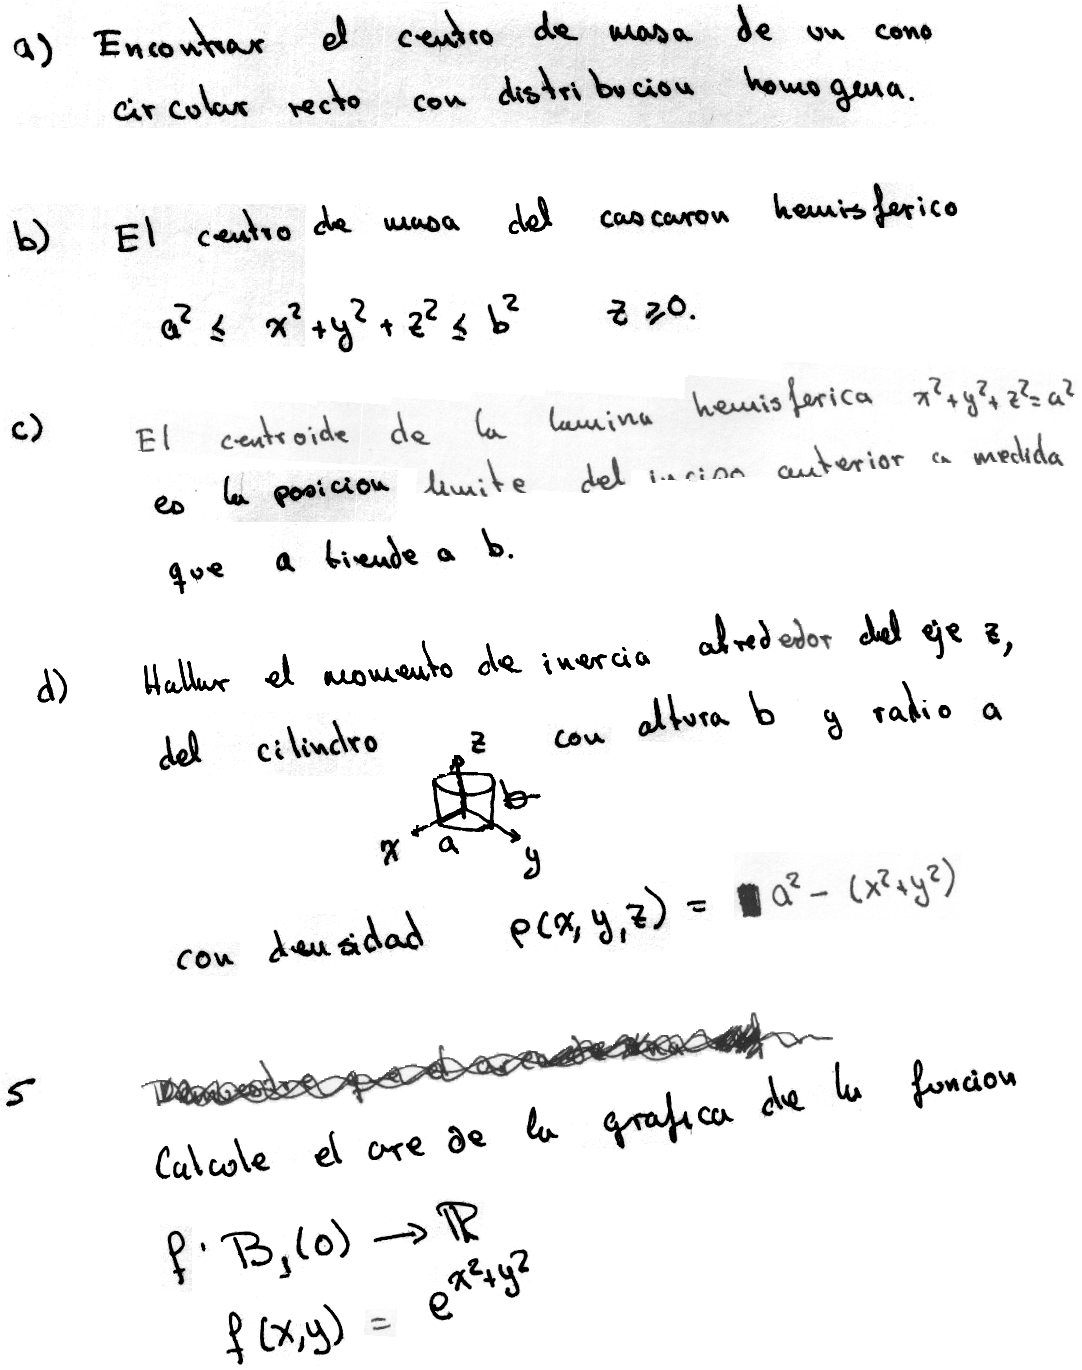 a) Encontrar el centro de masa de un cono
circular recto con distribucion homogena.
b) El centro de masa del cascaron hemisferico
a² ≤ x²+y²+z² ≤ b² z ≥0.
c) El centroide de la lamina hemisferica x²+y²+z²=a²
es la posicion limite del inciso anterior a medida
que a tiende a b.
d) Hallar el momento de inercia alrededor del eje z,
del cilindro con altura b y radio a
z
b
x a y
con densidad ρ(x,y,z) = a² - (x²+y²)
5
Calcule el are de la grafica de la funcion
f: B₁(0) → ℝ
f(x,y) = e^{x²+y²}